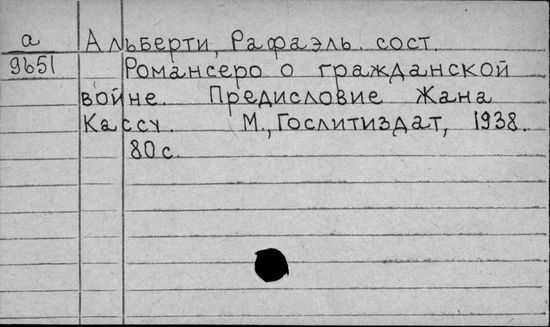 а Альберти, Рафаэль. сост.
9651 Романсеро о гражданской
войне. Предисловие Жана
Кассу. М., Гослитиздат, 1938.
80 с.